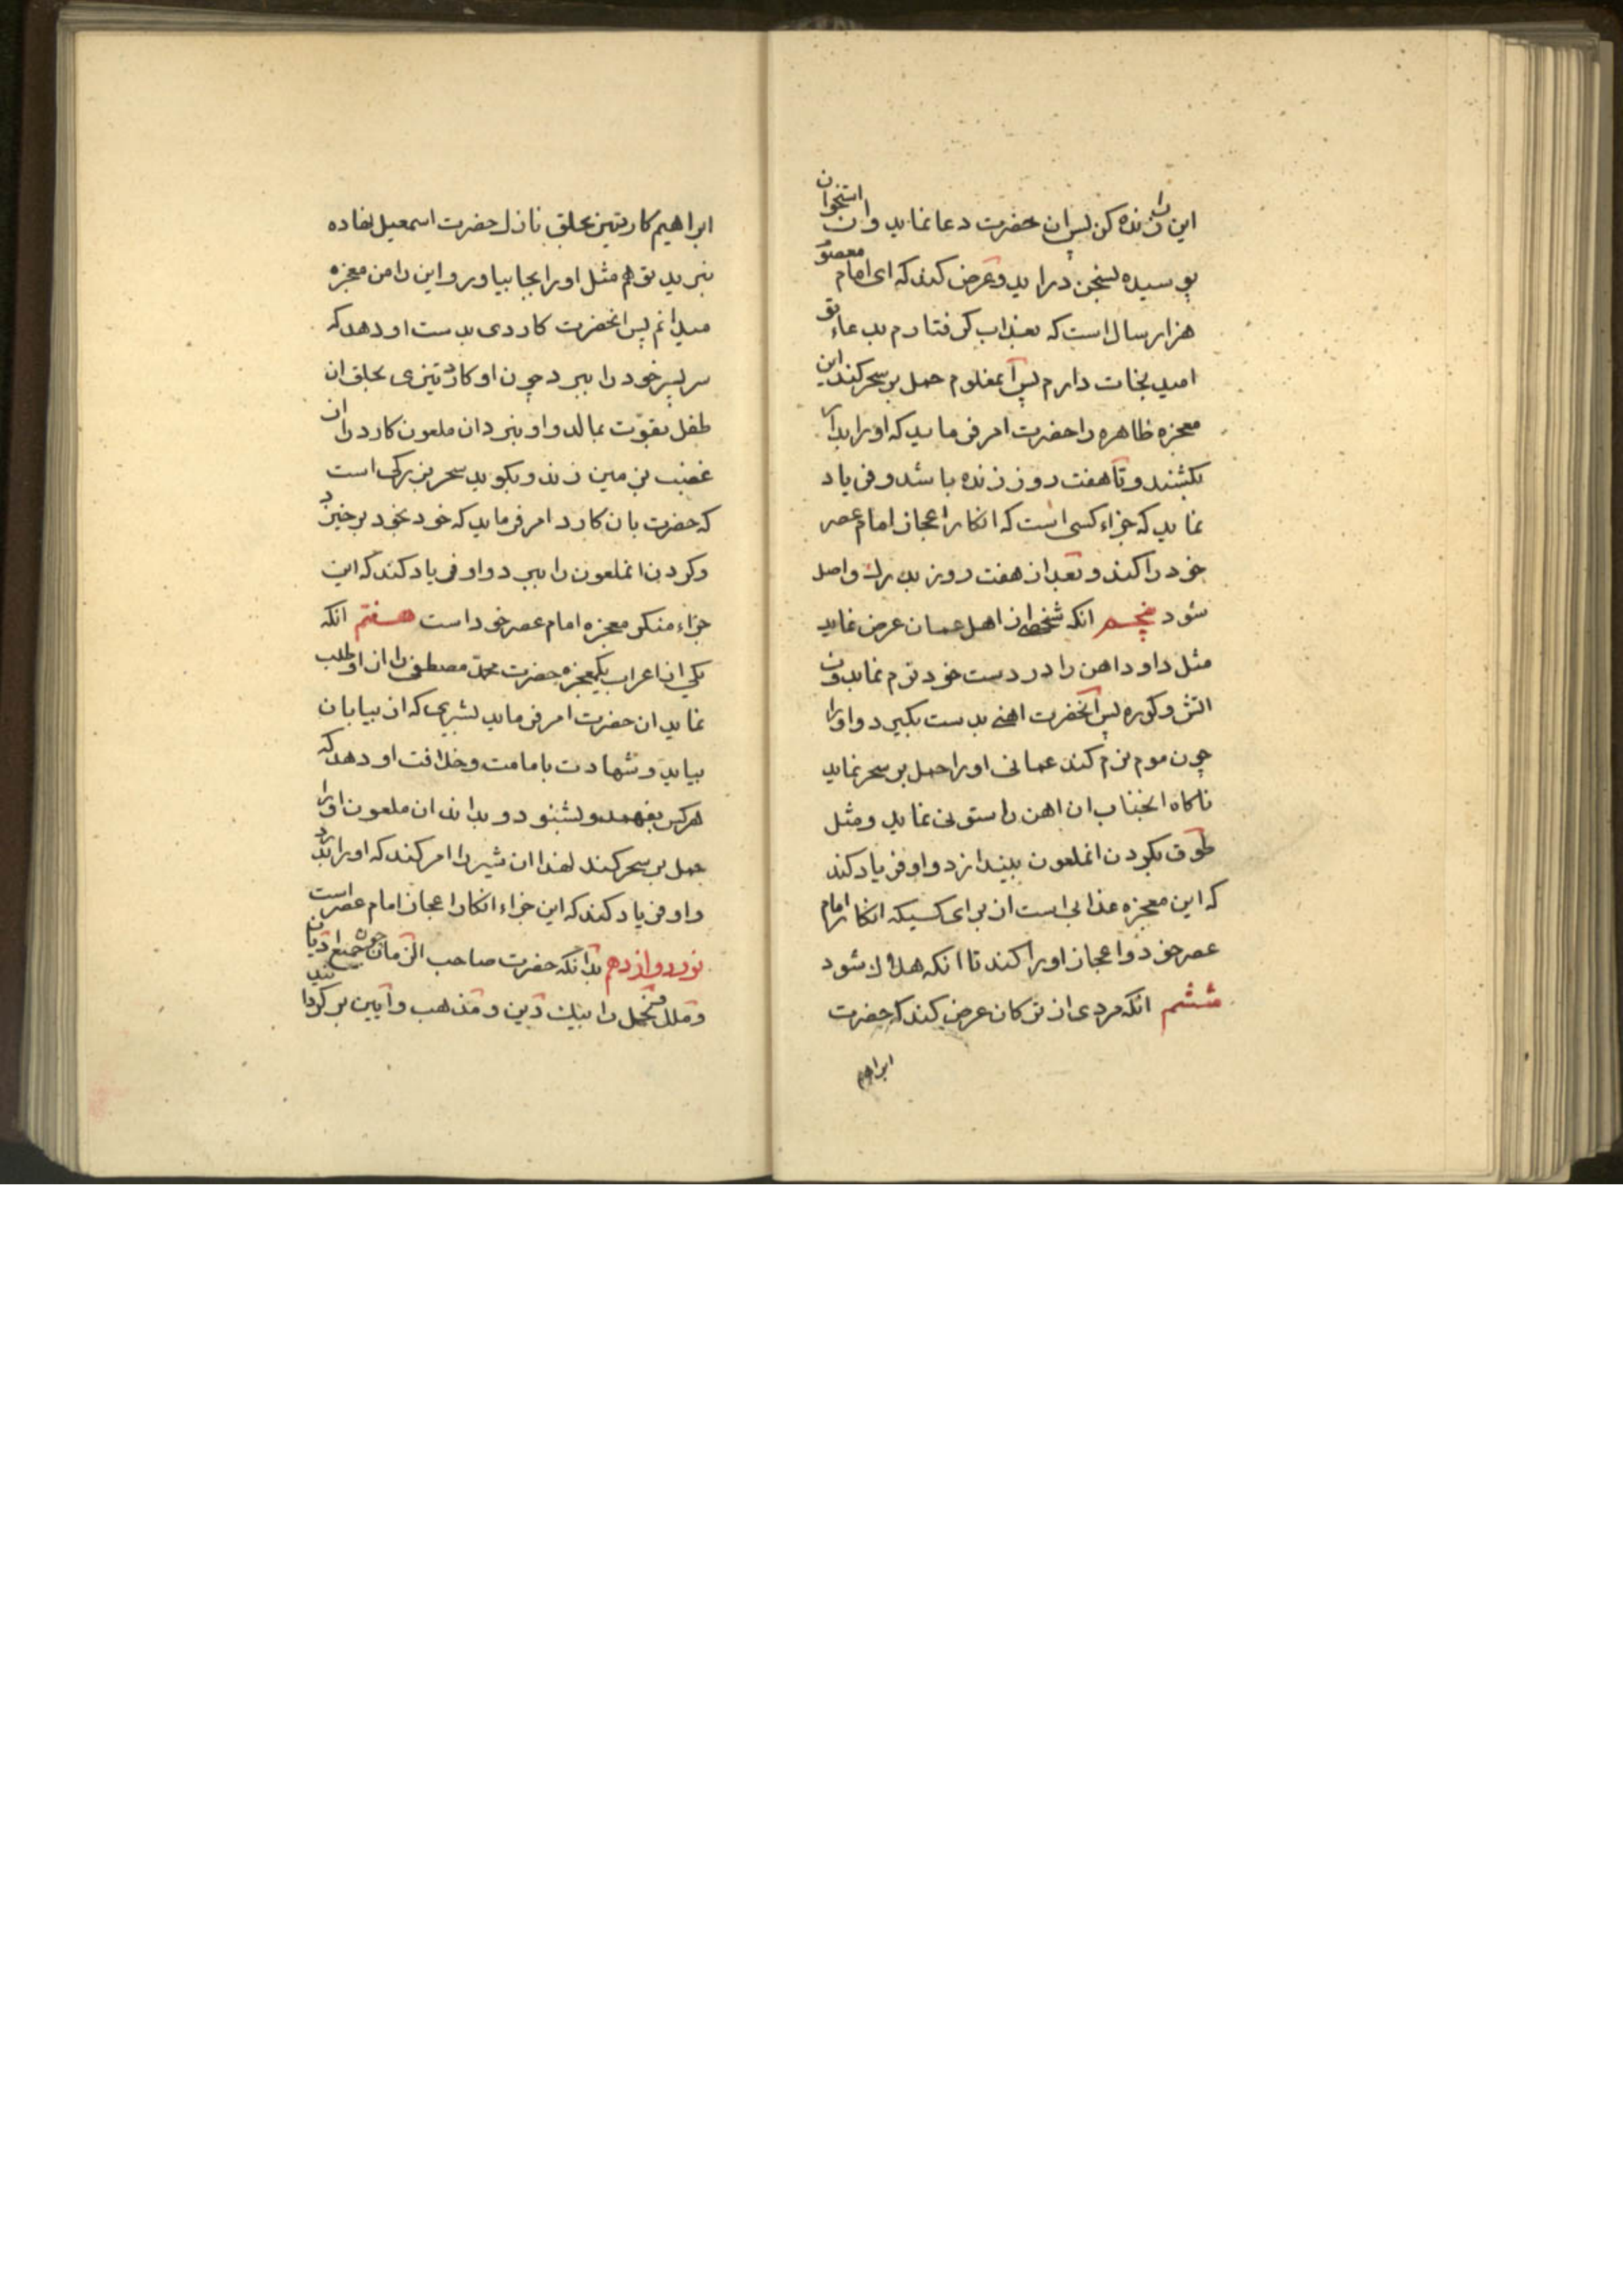 این را زنده کن پس ان حضرت دعا نماید و ان استخوان
پوسیده بسخن دراید و عرض کند که ای امام معصوم
هزار سال است که بعذاب گرفتارم بدعاء تو
امید نجات دارم پس آنمغلوم حمل بر سحر کند این
معجزه ظاهره را حضرت امر فرماید که او را بدار
بکشند و تا هفت روز زنده باشد و فریاد
نماید که جزاء کسی است که انکار اعجاز امام عصر
خود را کند و بعد از هفت روز بدرك واصل
شود پنجم انکه شخصی از اهل عمان عرض نماید
مثل داود اهن را در دست خود نرم نماید بدون
اتش و کوره پس آنحضرت اهنی بدست بگیرد و او را
چون موم نرم کند عمانی او را حمل بر سحر نماید
ناگاه انجناب ان اهن را ستونی نماید و مثل
طوق بگردن انملعون بیندازد و او فریاد کند
که این معجزه عذابی است از برای کسیکه انکار امام
عصر خود و اعجاز او را کند تا انکه هلاك شود
ششم انکه مردی از ترکان عرض کند که حضرت
ابراهیم
ابراهیم کارد تیز بحلق نازك حضرت اسمعیل نهاده
نبرید تو هم مثل او را بجا بیاور و این را من معجزه
میدانم پس انحضرت کاردی بدست او دهد که
سر پسر خود را ببرد چون او کارد تیزی بحلق ان
طفل بقوّت بمالد و او نبرد ان ملعون کارد را از
غضب بزمین زند و بگوید سحر بزرگی است
که حضرت بان کارد امر فرماید که خود بخود برخیزد
و گردن انملعون را ببرد و او فریاد کند که این
جزاء منکر معجزه امام عصر خود است هفتم انکه
یکی از اعراب یکمعجزه حضرت محمّد مصطفی را از او طلب
نماید ان حضرت امر فرماید بشیری که از بیابان
بیاید و شهادت بامامت و خلافت او دهد که
هر کس بفهمد و بشنود و بداند ان ملعون او را
حمل بر سحر کند لهذا ان شیر را امر کند که او را بدرد
و او فریاد کند که این جزاء انکار اعجاز امام عصر است
نور دوازدهم بدانکه حضرت صاحب الزّمان چون جمیع ادیان
و ملل و نحل را بیك دین و مذهب و آیین برگردانند